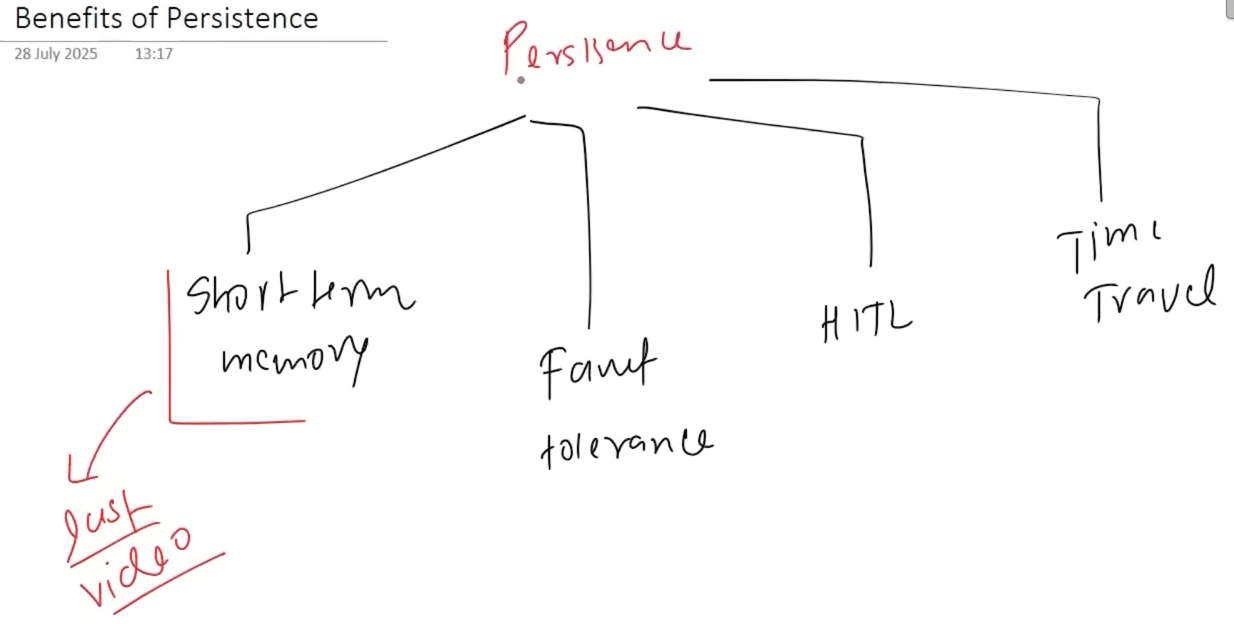 Benefits of Persistence
28 July 2025 13:17
Persistence
Short term
memory
Fault
tolerance
HITL
Time
Travel
last
video